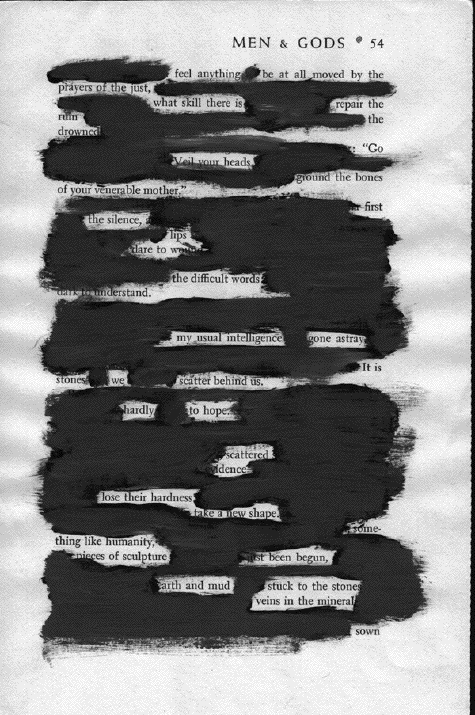 MEN & GODS • 54
feel anything be at all moved by the
prayers of the just,
what skill there is repair the
ruin the
drowned
: "Go
Veil your heads,
ground the bones
of your venerable mother."
first
the silence,
lips
dare to
the difficult words
understand.
my usual intelligence gone astray
It is
stones we scatter behind us.
hardly to hope.
scattered
lose their hardness
take a new shape.
some-
thing like humanity,
pieces of sculpture been begun,
earth and mud stuck to the stone
veins in the mineral
sown